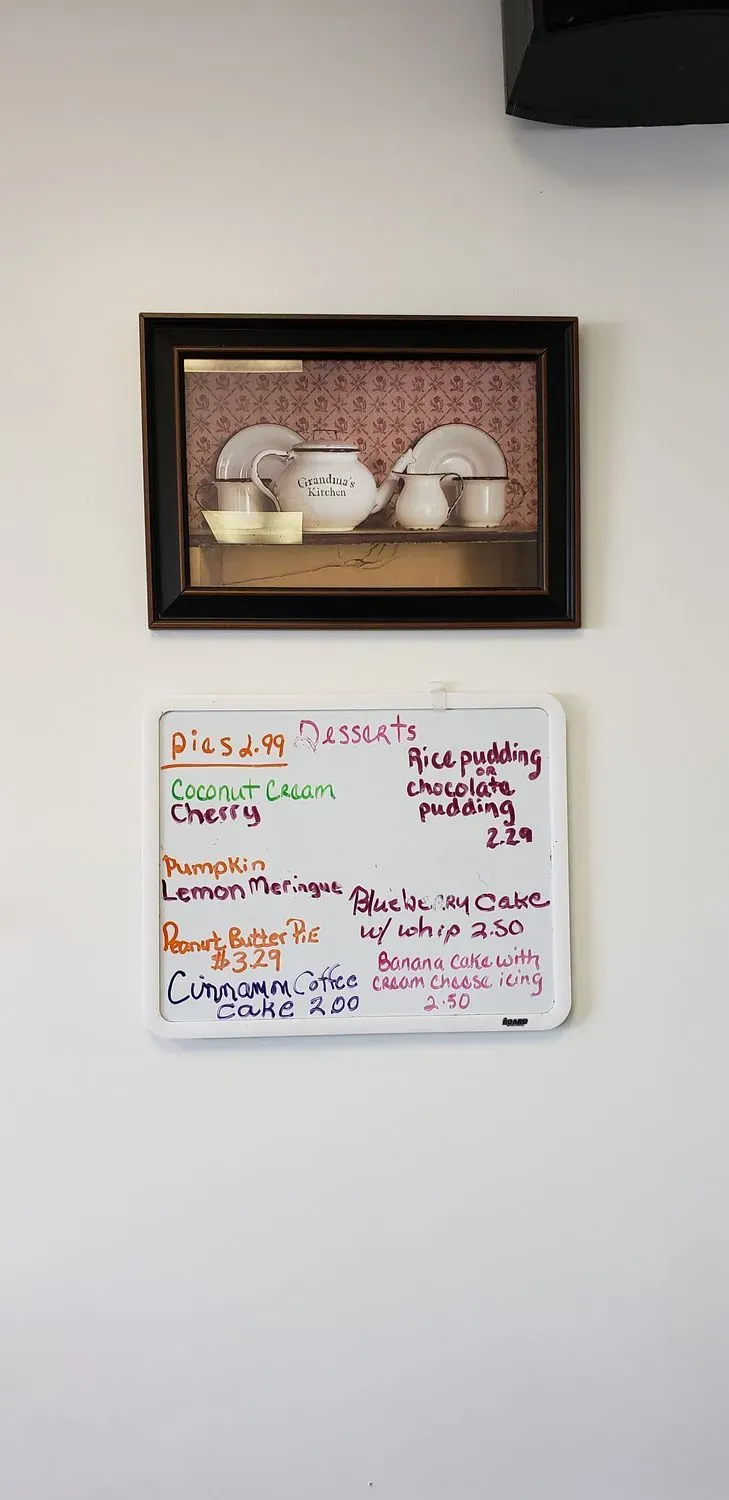 Grandma's
Kitchen
Desserts
Pies 2.99
Coconut Cream
Cherry
Pumpkin
Lemon Meringue
Peanut Butter PiE
$3.29
Cinnamon Coffee
cake 2.00
Rice pudding
OR
chocolate
pudding
2.29
Blueberry Cake
w/ whip 2.50
Banana Cake with
cream cheese icing
2.50
BOARD